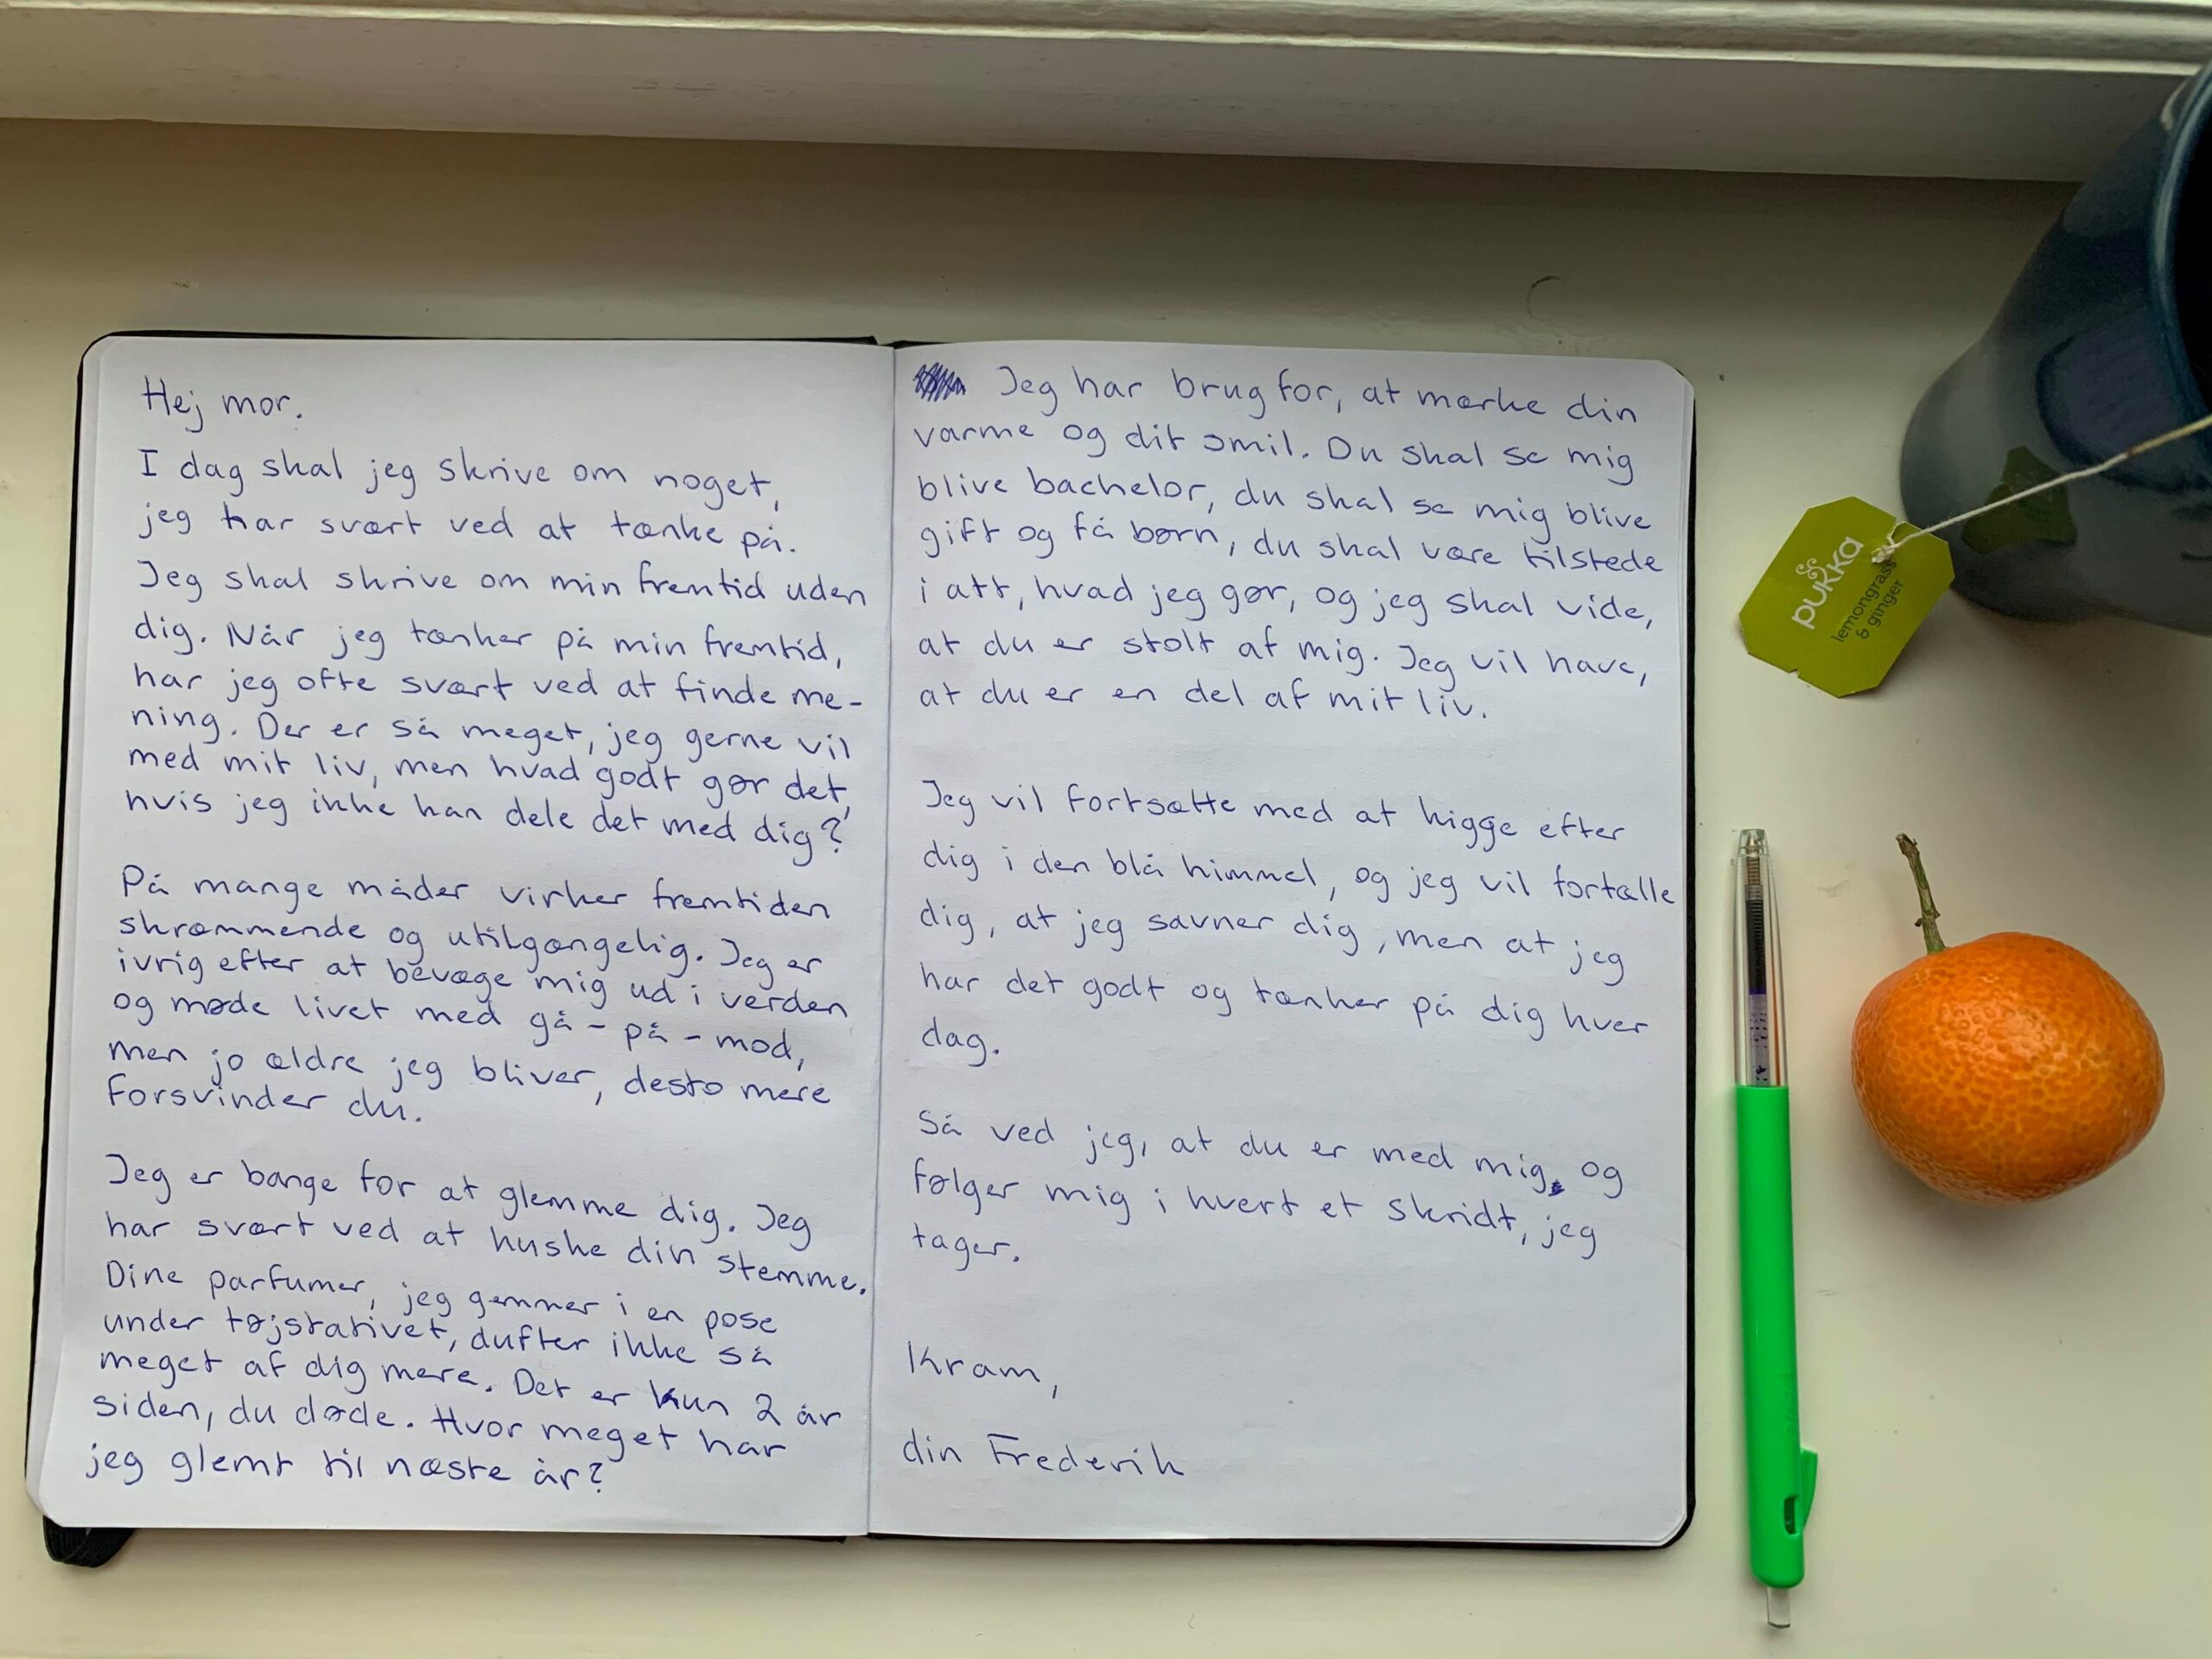 Hej mor.
I dag skal jeg skrive om noget,
jeg har svært ved at tænke på.
Jeg skal skrive om min fremtid uden
dig. Når jeg tænker på min fremtid,
har jeg ofte svært ved at finde me-
ning. Der er så meget, jeg gerne vil
med mit liv, men hvad godt gør det,
hvis jeg ikke kan dele det med dig?
På mange måder virker fremtiden
skræmmende og utilgængelig. Jeg er
ivrig efter at bevæge mig ud i verden
og møde livet med gå-på-mod,
men jo ældre jeg bliver, desto mere
forsvinder du.
Jeg er bange for at glemme dig. Jeg
har svært ved at huske din stemme.
Dine parfumer, jeg gemmer i en pose
under tøjstativet, dufter ikke så
meget af dig mere. Det er kun 2 år
siden, du døde. Hvor meget har
jeg glemt til næste år?
Jeg har brug for, at mærke din
varme og dit smil. Du skal se mig
blive bachelor, du skal se mig blive
gift og få børn, du skal være tilstede
i alt, hvad jeg gør, og jeg skal vide,
at du er stolt af mig. Jeg vil have,
at du er en del af mit liv.
Jeg vil fortsætte med at kigge efter
dig i den blå himmel, og jeg vil fortælle
dig, at jeg savner dig, men at jeg
har det godt og tænker på dig hver
dag.
Så ved jeg, at du er med mig, og
følger mig i hvert et skridt, jeg
tager.
Kram,
din Frederik
pukka
lemongrass
& ginger